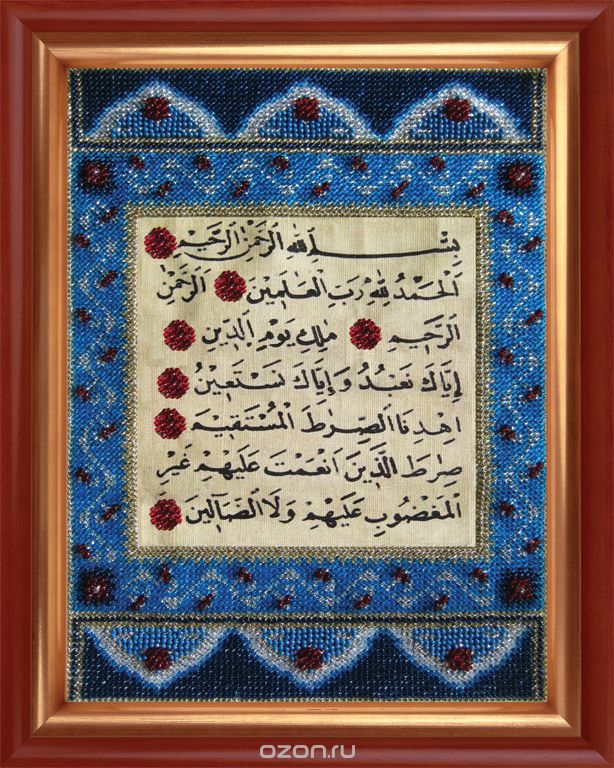 بِسْمِ اللهِ الرَّحْمٰنِ الرَّحِيْمِ
اَلْحَمْدُ لِلّٰهِ رَبِّ الْعَالَمِيْنَ اَلرَّحْمٰنِ
الرَّحِيْمِ مٰلِكِ يَوْمِ الدِّيْنِ
اِيَّاكَ نَعْبُدُ وَاِيَّاكَ نَسْتَعِيْنُ
اِهْدِنَا الصِّرَاطَ الْمُسْتَقِيْمَ
صِرَاطَ الَّذِيْنَ اَنْعَمْتَ عَلَيْهِمْ غَيْرِ
الْمَغْضُوبِ عَلَيْهِمْ وَلَا الضَّالِّيْنَ
ozon.ru